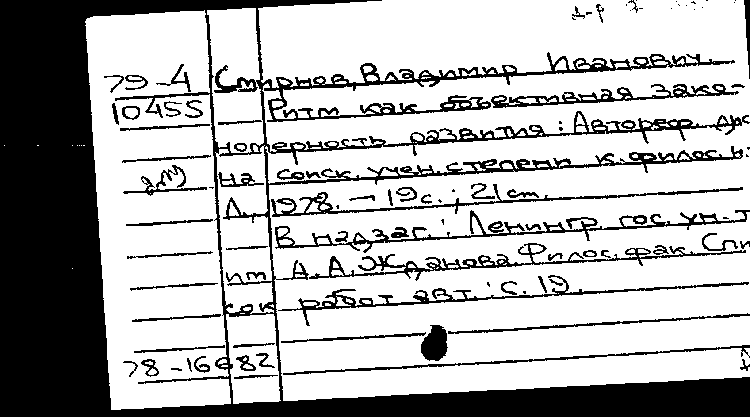 79-4 Смирнов, Владимир Иванович.
10455 Ритм как объективная зако-
номерность развития : Автореф. дис.
на соиск. учен. степени к. филос. н.
Л., 1978. — 19 с. ; 21 см.
В надзаг. : Ленингр. гос. ун-т
им. А. А. Жданова. Филос. фак. Спи-
сок работ авт. : с. 19.
78-16682